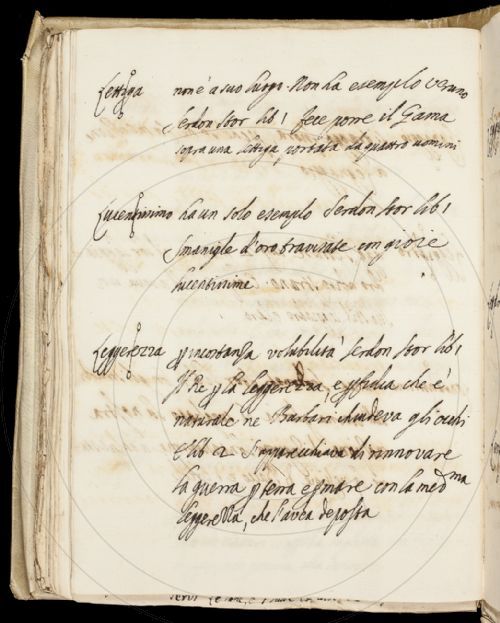 Lettiga non è a suo luogo. Non ha esemplo veruno
Serdon Stor lib 1 fece porre il Gama
sopra una lettiga, portata da quattro uomini
Lucentissimo ha un solo esemplo Serdon Stor lib 1
smanigle d'oro travisate con gioie
lucentissime
Leggerezza p incostanza volubilità Serdon Stor lib 1
Il Re p la leggerezza, e p fidia che è
naturale ne Barbari chiudeva gli occhi
E lib 2 S'apparecchiava di rinnovare
la guerra p terra e p mare con la med.ma
leggerezza, che l'avea deposta